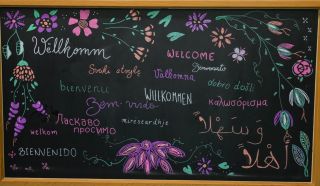 Willkomm
WELCOME
Benvenuto
Välkomna
bienvenu
dobro došli
WILLKOMMEN
Bem-vindo
καλωσόρισμα
Ласкаво
просимо
mirëseardhje
welkom
وسهلا
أهلا
BIENVENIDO